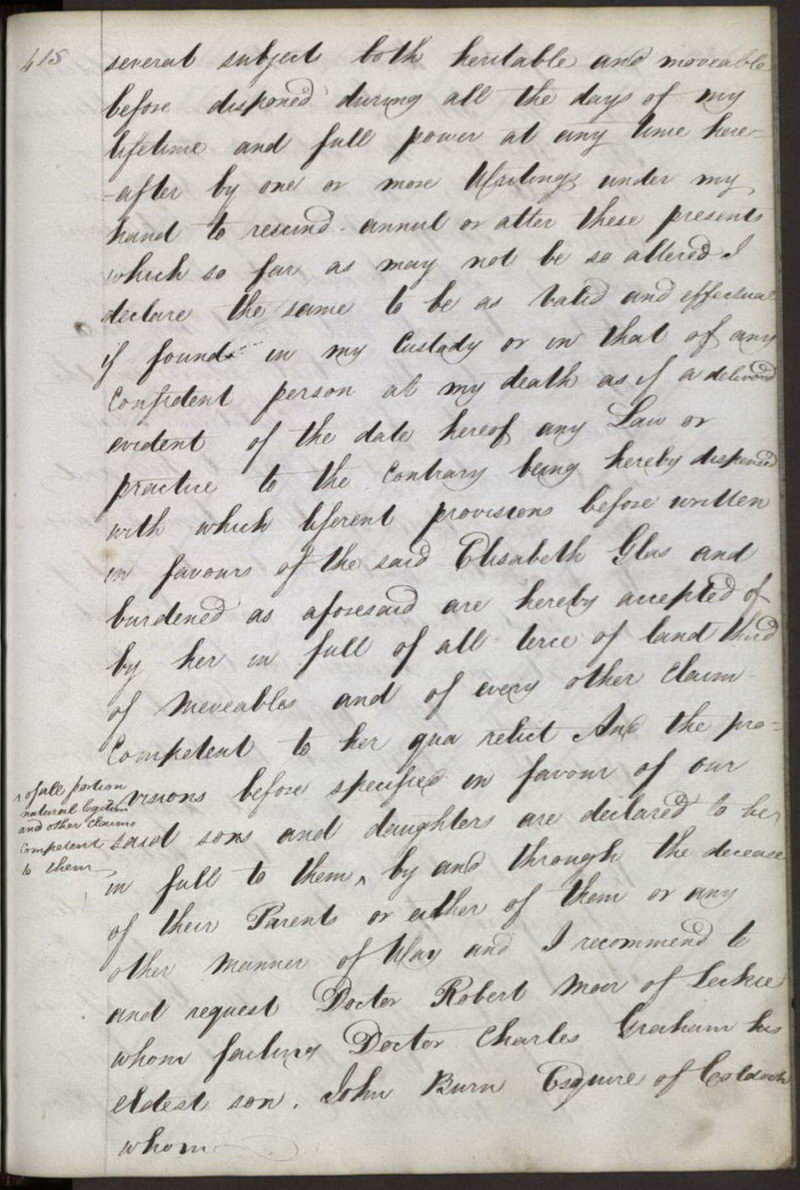 415
several subjects both heritable and moveable
before disponed during all the days of my
lifetime and full power at any time here=
=after by one or more Writings under my
hand to rescind annul or alter these presents
which so far as may not be so altered I
declare the same to be as valid and effectual
if found in my Custody or in that of any
Confident person at my death as if a delivered
evident of the date hereof any Law or
practice to the Contrary being hereby dispensed
with which liferent provisions before written
in favours of the said Elisabeth Glas and
burdened as aforesaid are hereby accepted of
by her in full of all terce of land third
of Moveables and of every other Claim
Competent to her qua relict And the pro=
visions before specified in favour of our
said sons and daughters are declared to be
in full to them ^ by and through the decease
^ of all portion
natural legitim
and other Claims
Competent
to them
of their Parents or either of them or any
other manner of Way and I recommend to
and request Doctor Robert Moir of Leckie
whom failing Doctor Charles Graham his
eldest son. John Burn Esquire of Coldoch
whom